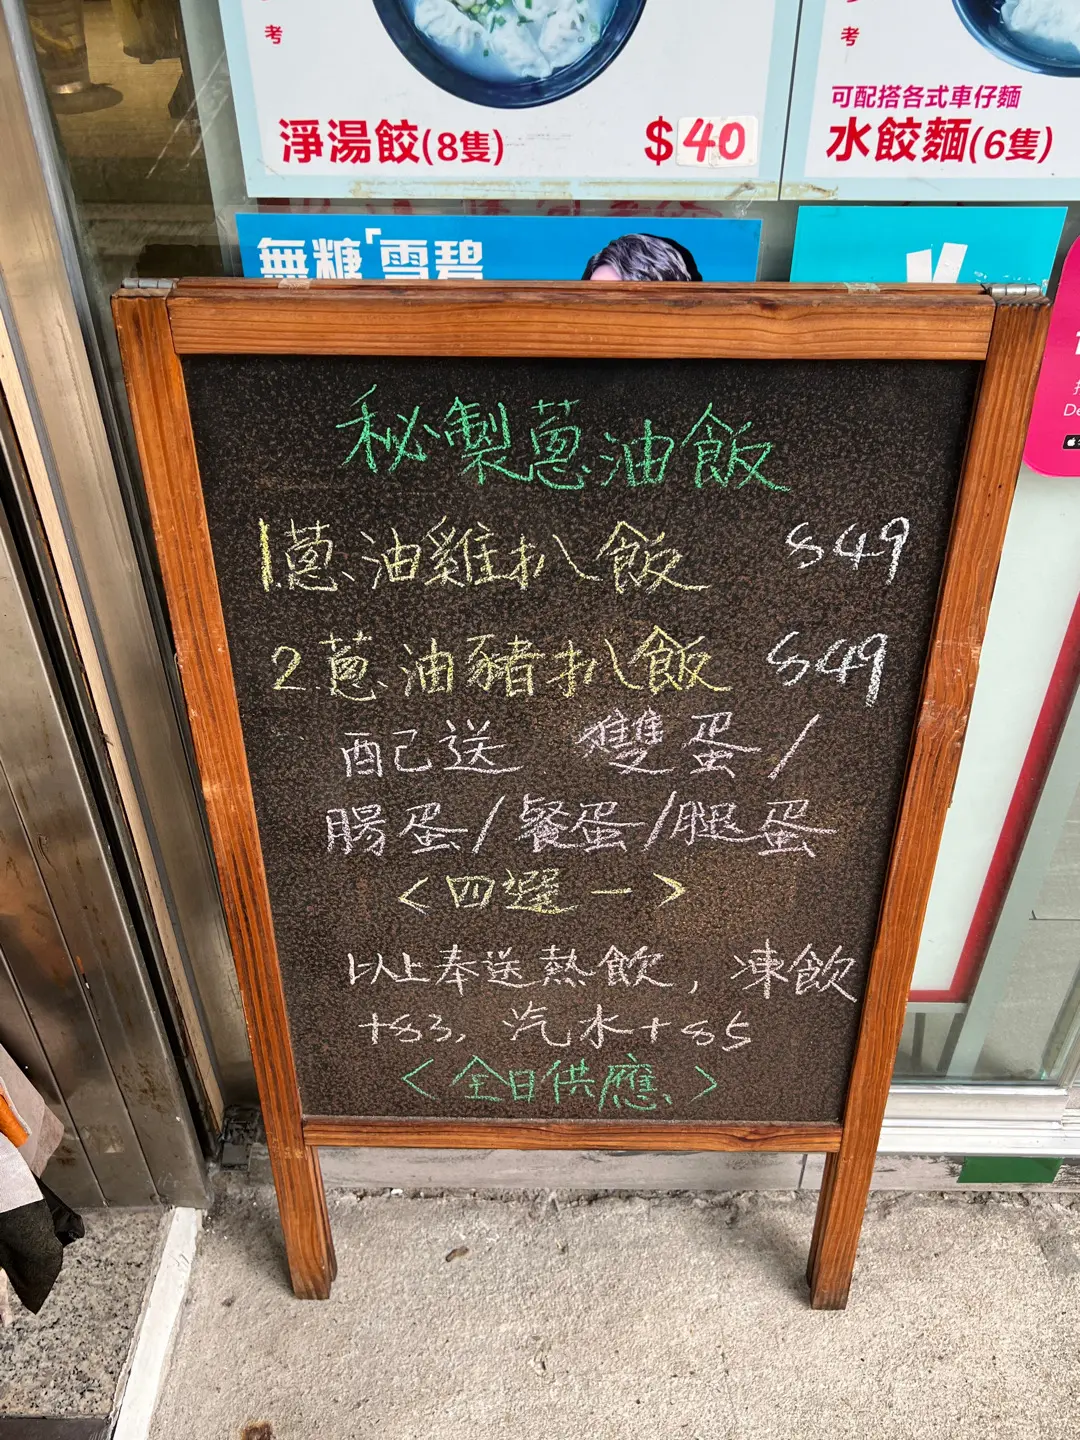 考
考
可配搭各式車仔麵
淨湯餃(8隻) $40
水餃麵(6隻)
無糖「雪碧
秘製蔥油飯
1.蔥油雞扒飯 $49
2.蔥油豬扒飯 $49
配送 雙蛋/
腸蛋/餐蛋/腿蛋
<四選一>
以上奉送熱飲,凍飲
+$3,汽水+$5
<全日供應>